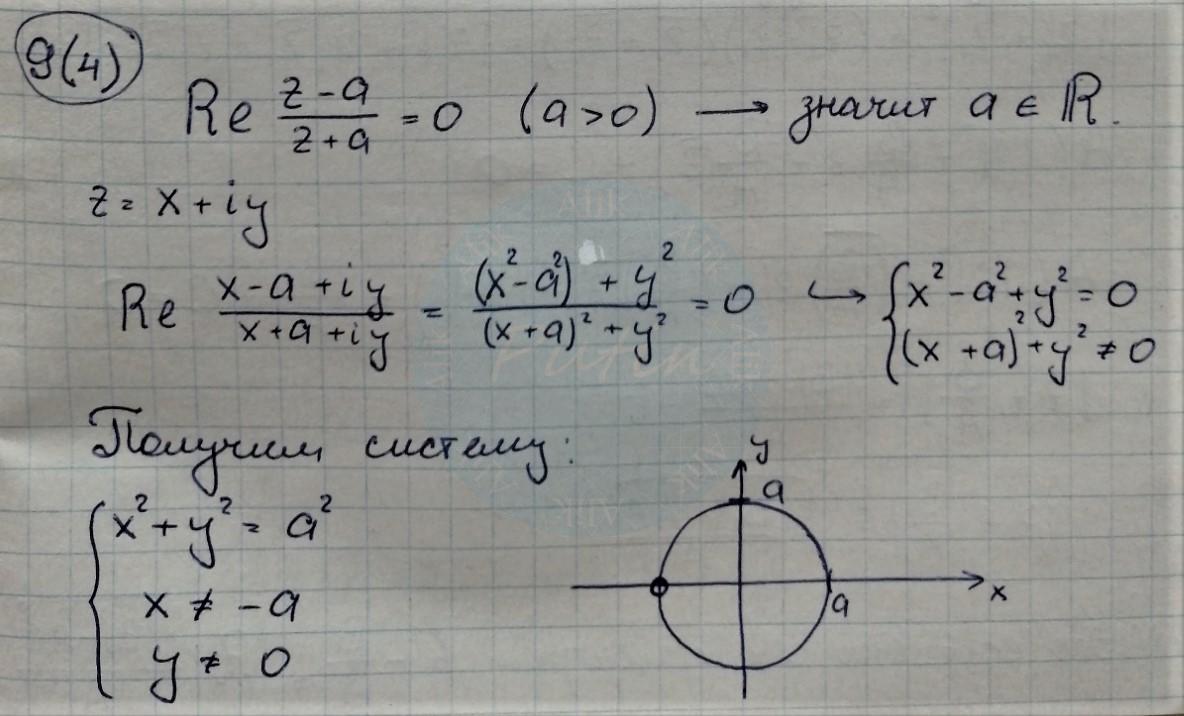 9(4)
Re (z-a)/(z+a) = 0 (a>0) → значит a ∈ ℝ.
z = x + iy
Re (x-a+iy)/(x+a+iy) = ((x²-a²) + y²)/((x+a)² + y²) = 0 ↪ { x² - a² + y² = 0
(x + a)² + y² ≠ 0
Получим систему:
{ x² + y² = a²
x ≠ -a
y ≠ 0
y
a
a
x